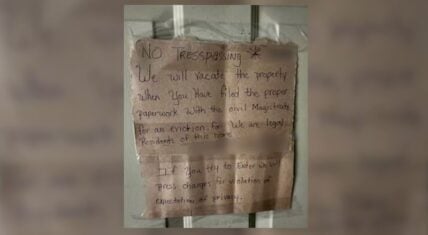 NO TRESSPASSING *
We will vacate the property
when You have filed the proper
paperwork with the civil Magistrate
for an eviction for We are legal
Residents of this home
If You try to Enter we will
press charges for violation of
expectation of privacy.